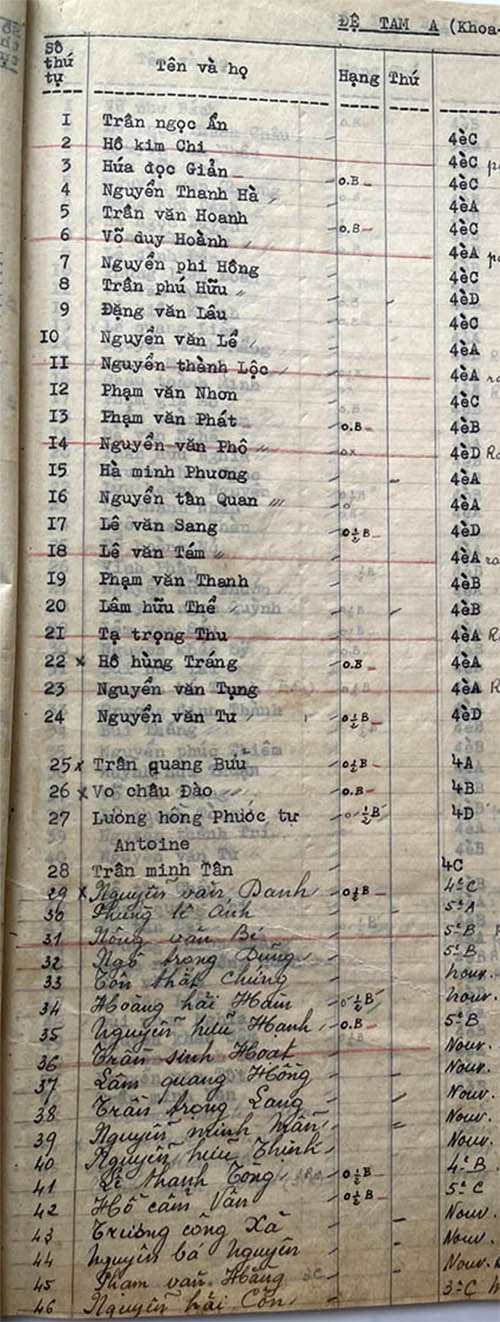 ĐỆ TAM A (Khoa-
Số thứ tự Tên và họ Hạng Thứ
1 Trần ngọc Ẩn 4èC
2 Hồ kim Chi 4èC
3 Hứa đọc Giản 0.B 4èC
4 Nguyễn Thanh Hà 4èA
5 Trần văn Hoanh 0.B 4èC
6 Võ duy Hoành 4èA
7 Nguyễn phi Hồng 4èC
8 Trần phú Hữu 4èD
9 Đặng văn Lâu 4èC
10 Nguyễn văn Lễ 4èA
11 Nguyễn thành Lộc 4èA
12 Phạm văn Nhơn 4èC
13 Phạm văn Phát 0.B 4èB
14 Nguyễn văn Phô 4èD
15 Hà minh Phương 4èA
16 Nguyễn tân Quan 4èA
17 Lê văn Sang 0½B 4èD
18 Lê văn Tém 4èA
19 Phạm văn Thanh 4èB
20 Lâm hữu Thể 4èB
21 Tạ trọng Thu 4èA
22 x Hồ hùng Tráng 0.B 4èA
23 Nguyễn văn Tụng 4èA
24 Nguyễn văn Tư 0½B 4èD
25 x Trần quang Bửu 0½B 4A
26 x Vo châu Đào 0.B 4B
27 Lương hồng Phước tự 0½B 4D
Antoine
28 Trần minh Tân 4C
29 x Nguyễn văn Danh 0½B 4èC
30 Phùng lê Anh 5èA
31 Nông văn Bé 5èB
32 Ngô trọng Dũng 5èB
33 Tôn thất Chứng Nouv.
34 Hoàng hải Hàm 0½B Nouv.
35 Nguyễn hữu Hạnh 0.B 5èB
36 Trần sinh Hoạt Nouv.
37 Lâm quang Hồng Nouv.
38 Trần trọng Lang Nouv.
39 Nguyễn minh Mẫn Nouv.
40 Nguyễn hữu Thịnh Nouv.
41 Lê thanh Tòng 0½B 4èB
42 Hồ cẩm Vân 0½B 5èC
43 Trương công Xà Nouv.
44 Nguyễn bá Nguyên Nouv.
45 Phạm văn Hằng 3C Nouv.
46 Nguyễn hải Côn 3èC